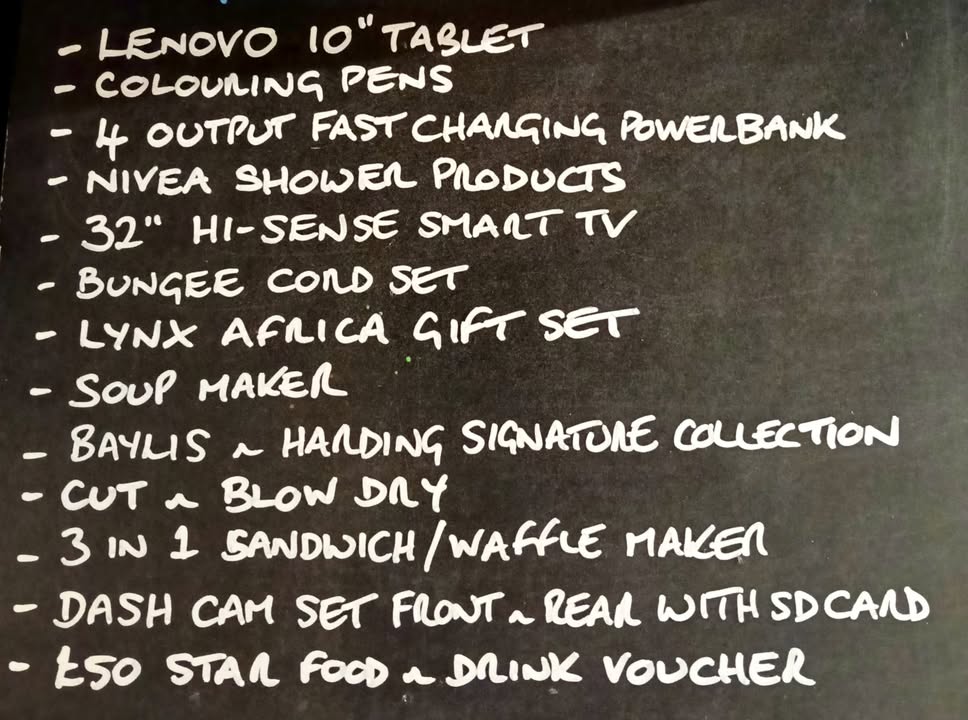 - LENOVO 10" TABLET
- COLOURING PENS
- 4 OUTPUT FAST CHARGING POWERBANK
- NIVEA SHOWER PRODUCTS
- 32" HI-SENSE SMART TV
- BUNGEE CORD SET
- LYNX AFRICA GIFT SET
- SOUP MAKER
- BAYLIS ~ HARDING SIGNATURE COLLECTION
- CUT ~ BLOW DRY
- 3 IN 1 SANDWICH/WAFFLE MAKER
- DASH CAM SET FRONT ~ REAR WITH SD CARD
- £50 STAR FOOD ~ DRINK VOUCHER